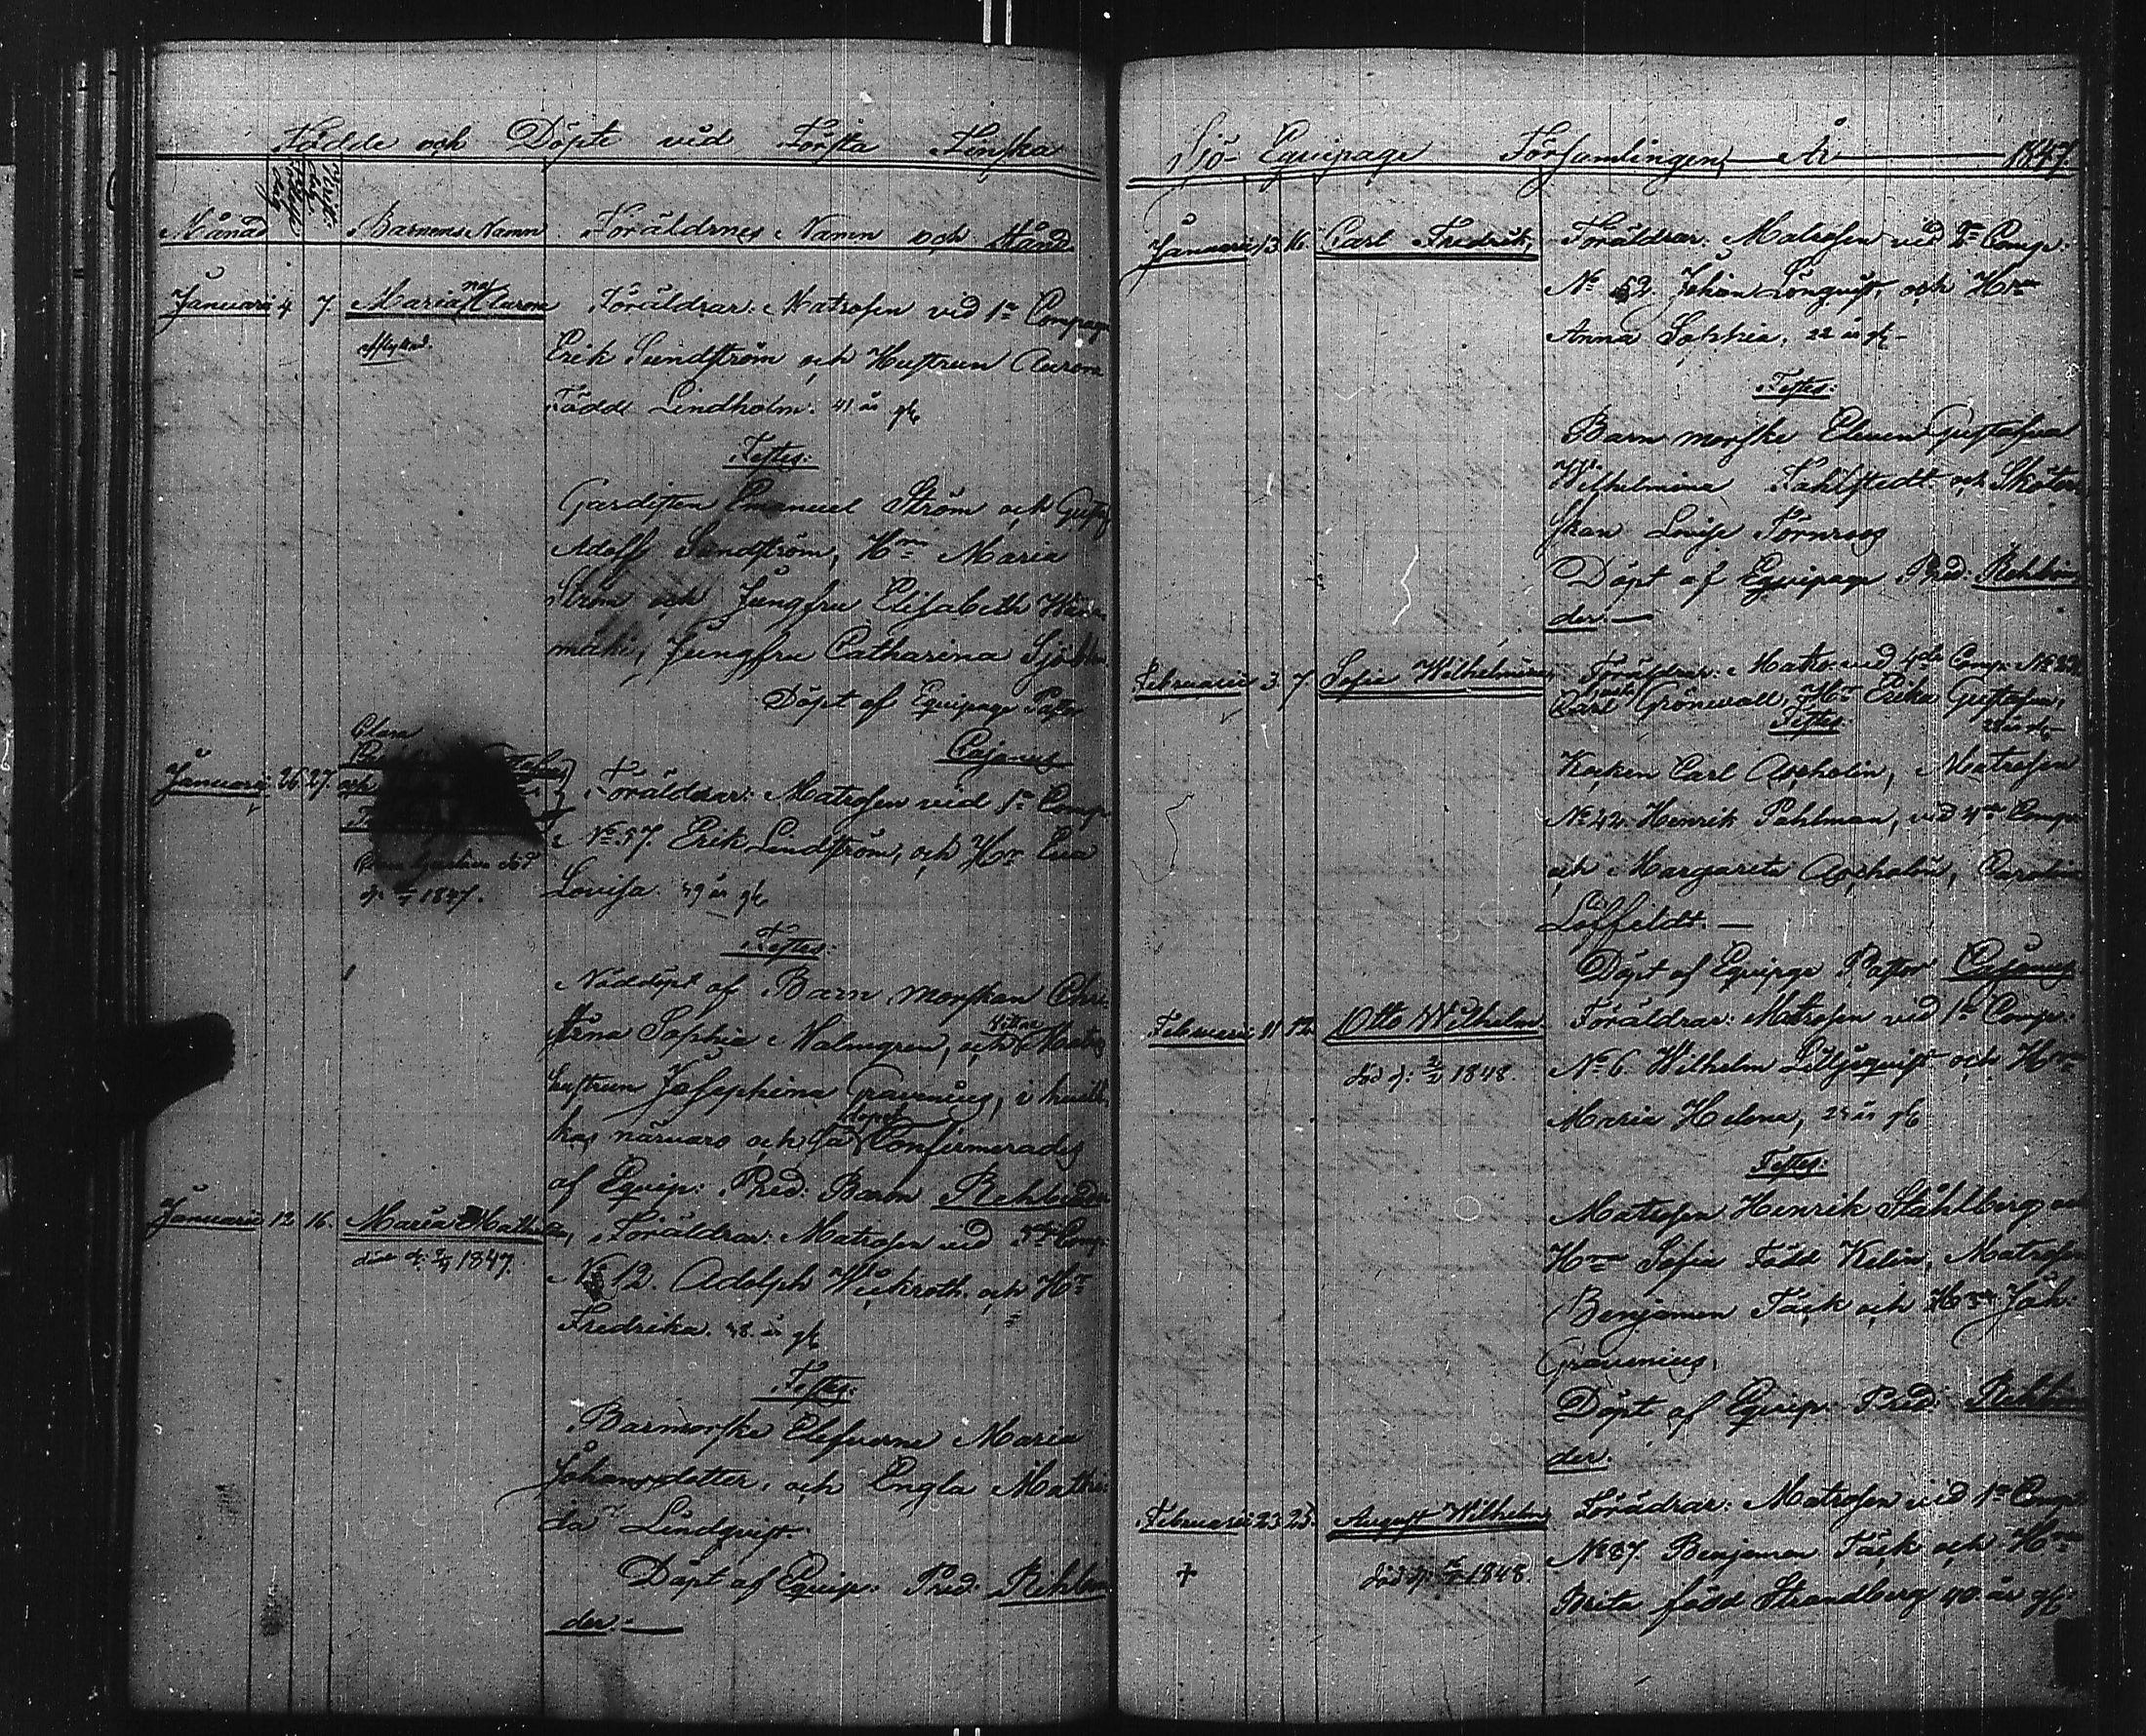 Födde och Döpte vid Första Finska
Månad
Barnens Namn
Föräldrnes Namn och Stånd
Januari 4 7. Maria Aurora
afflyttad.
Föräldrar: Matrosen vid 1ra Compagn
Erik Sundström och Hustrun Aurora
Född Lindholm. 41 år gl
Testes:
Gardisten Emanuel Ström och Gustaf
Adolf Sundström, Hrn Maria
Ström och Jungfru Elisabeth
mäki, Jungfru Catharina
Döpt af Equipage Pastor
Cajanus
Januari 26 27.
Clara
och
död
1847.
Föräldrar: Matrosen vid 1ra Comp
No 57. Erik Lindström, och Hrn Eva
Lovisa. 39 år gl
Testes:
Nöddöpt af Barn morskan Chri
stina Sophia Malmgren, och Matros
hustrun Josephina Gravenius, i hvilk
kas närvaro och så Confirmerades
döpet
af Equip: Pred: Barm Rehbinder
Januari 12 16. Maria Mathilda,
död d: 1847.
Föräldrar: Matrosen vid Comp
No 12. Adolph Wickroth och Hn
Fredrika. 38. år gl
Testes:
Barnmorske Eleverne Maria
Johansdotter, och Engla Mathil
da Lindqvist.
Döpt af Equip: Pred: Rehbin
der.—
Sjö Equipage Församlingen År 1847.
Januari 13 16 Carl Fredrik,
Föräldrar: Matrosen vid Comp:
No 52 Johan Lönqvist, och Hrn
Anna Sophia, 22 år gl—
Testes:
Barn morske Eleven Gustafva
Wilhelmina Fahlstedt och Sköter
skan Lovise Törnroos
Döpt af Equipage Pred: Rehbin
der.—
Februari 3 7 Sofia Wilhelmina
Föräldrar: Matros vid 4de Comp: No
Carl Gust. Grönvall, Hn Erika Gustafva,
Testes:
Kocken Carl Axholin, Matrosen
No 42. Henrik Pahlman, vid 4de Comp
och Margareta Axholin, Carolina
Löffeldt.—
Döpt af Equipage Pastor Cajanus
Februari 11 12. Otto Wilhelm
död d: 1848.
Föräldrar: Matrosen vid 1ra Comp:
No 6. Wilhelm Liljeqvist och Hrn
Maria Helena, 25 år gl
Testes:
Matrosen Henrik Ståhlberg och
Hrn Sofia Född Kelin, Matrosen
Benjamen Täck och Hrn Joh:
Gravenius,
Döpt af Equip. Pred: Rehbin
der.
Februari 23 25. August Wilhelm
+
död d: 1848.
Förädrar: Matrosen vid 1ra Comp
No 87. Benjamen Täck och Hrn
Brita född Strandberg 40 år gl